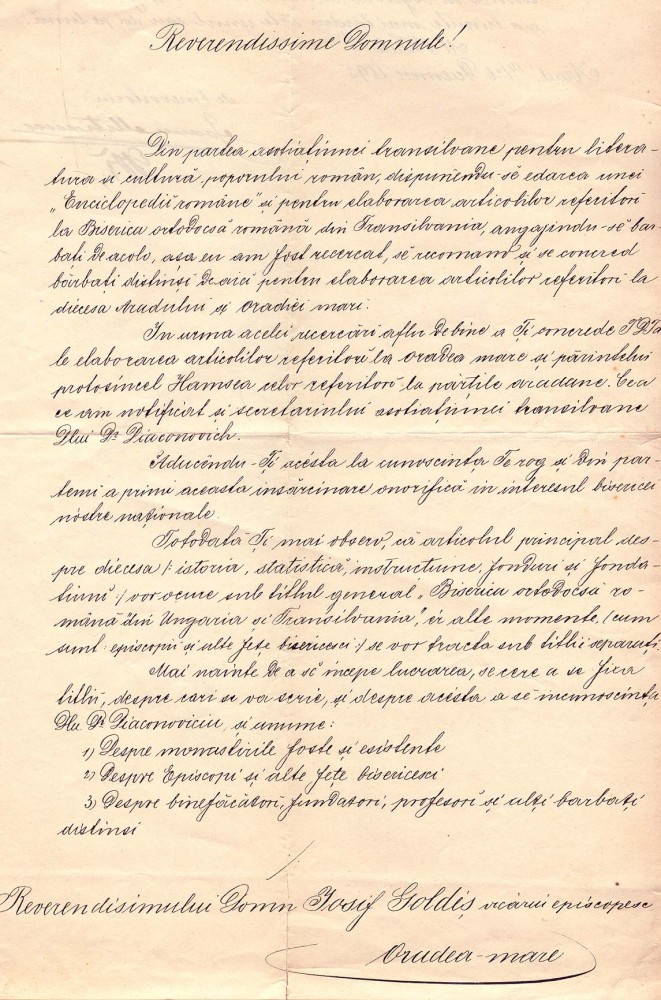 Reverendissime Domnule!
Din partea asotiațiunei transilvane pentru litera-
tura si cultură poporului român, dispunêndu-sê edarea unei
"Enciclopedii române" și pentru elaborarea articolilor referitori
la Biserica ortodocsă română din Transilvania, angajindu-sê bar-
bati de acolo, asa eu am fost recercat, sê recomand și se concred
bărbați distinși de aici pentru elaborarea articolilor referitori la
diecesa Aradului și Oradiei mari.
In urma acelei recercări aflu de bine a Ți concrede
le elaborarea articolilor referitori la Oradea mare și părintelui
protosincel Hamsea celor referitori la părțile aradane. Cea
ce am notificat si secretariului asotiațiunei transilvane
Dlui Dr. Diaconovich.
Aducêndu-Ți acésta la cunoscinta Te rog și din par-
temi a primi aceasta insărcinare onorifică in interesul bisericei
nóstre naționale.
Totodată Ți mai observ, că articolul principal des-
pre diecesa /: istoria, statistica, instructiune, fonduri si fonda-
tiuni :/ vor ocure sub titlul general "Biserica ortodocsă ro-
mână din Ungaria si Transilvania", ér alte momente, (cum
sunt: episcopii și alte fețe bisericesci :/ se vor tracta sub titlii separați.
Mai nainte de a sê incepe lucrarea, se cere a se fixa
titlii, despre cari se va scrie, și despre acésta a sê incunoscința
Dlu Dr. Diaconoviciu, și anume:
1) Despre monastirile foste și esistente
2) Despre Episcopi si alte fețe bisericesci
3) Despre binefăcători, fundatori, profesori și alți barbați
distinsi
Reverendisimului Domn Iosif Goldiș vicariu episcopesc
Oradea-mare